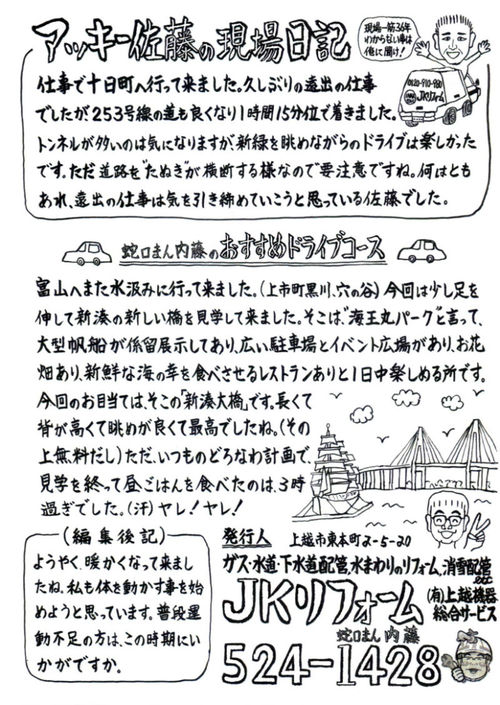 アッキー佐藤の現場日記
現場一筋36年
わからない事は
俺に聞け!
0120-910-980
JKリフォーム
仕事で十日町へ行って来ました。久しぶりの遠出の仕事
でしたが253号線の道も良くなり1時間15分位で着きました。
トンネルが多いのは気になりますが、新緑を眺めながらのドライブは楽しかった
です。ただ道路を“たぬき”が横断する様なので要注意ですね。何はとも
あれ、遠出の仕事は気を引き締めていこうと思っている佐藤でした。
蛇口まん内藤のおすすめドライブコース
富山へまた水汲みに行って来ました。(上市町黒川、穴の谷)今回は少し足を
伸して新湊の新しい橋を見学して来ました。そこは“海王丸パーク”と言って、
大型帆船が係留展示してあり、広い駐車場とイベント広場があり、お花
畑あり、新鮮な海の幸を食べさせるレストランありと1日中楽しめる所です。
今回のお目当ては、そこの「新湊大橋」です。長くて
背が高くて眺めが良くて最高でしたね。(その
上無料だし)ただ、いつものどろなわ計画で
見学を終って昼ごはんを食べたのは、3時
過ぎでした。(汗)ヤレ!ヤレ!
(編集後記)
ようやく、暖かくなって来まし
たね。私も体を動かす事を始
めようと思っています。普段運
動不足の方は、この時期にい
かがですか。
発行人 上越市東本町2-5-20
ガス・水道・下水道配管、水まわりのリフォーム、消雪配管etc
JKリフォーム
(有)上越機器
総合サービス
蛇口まん 内藤
524-1428